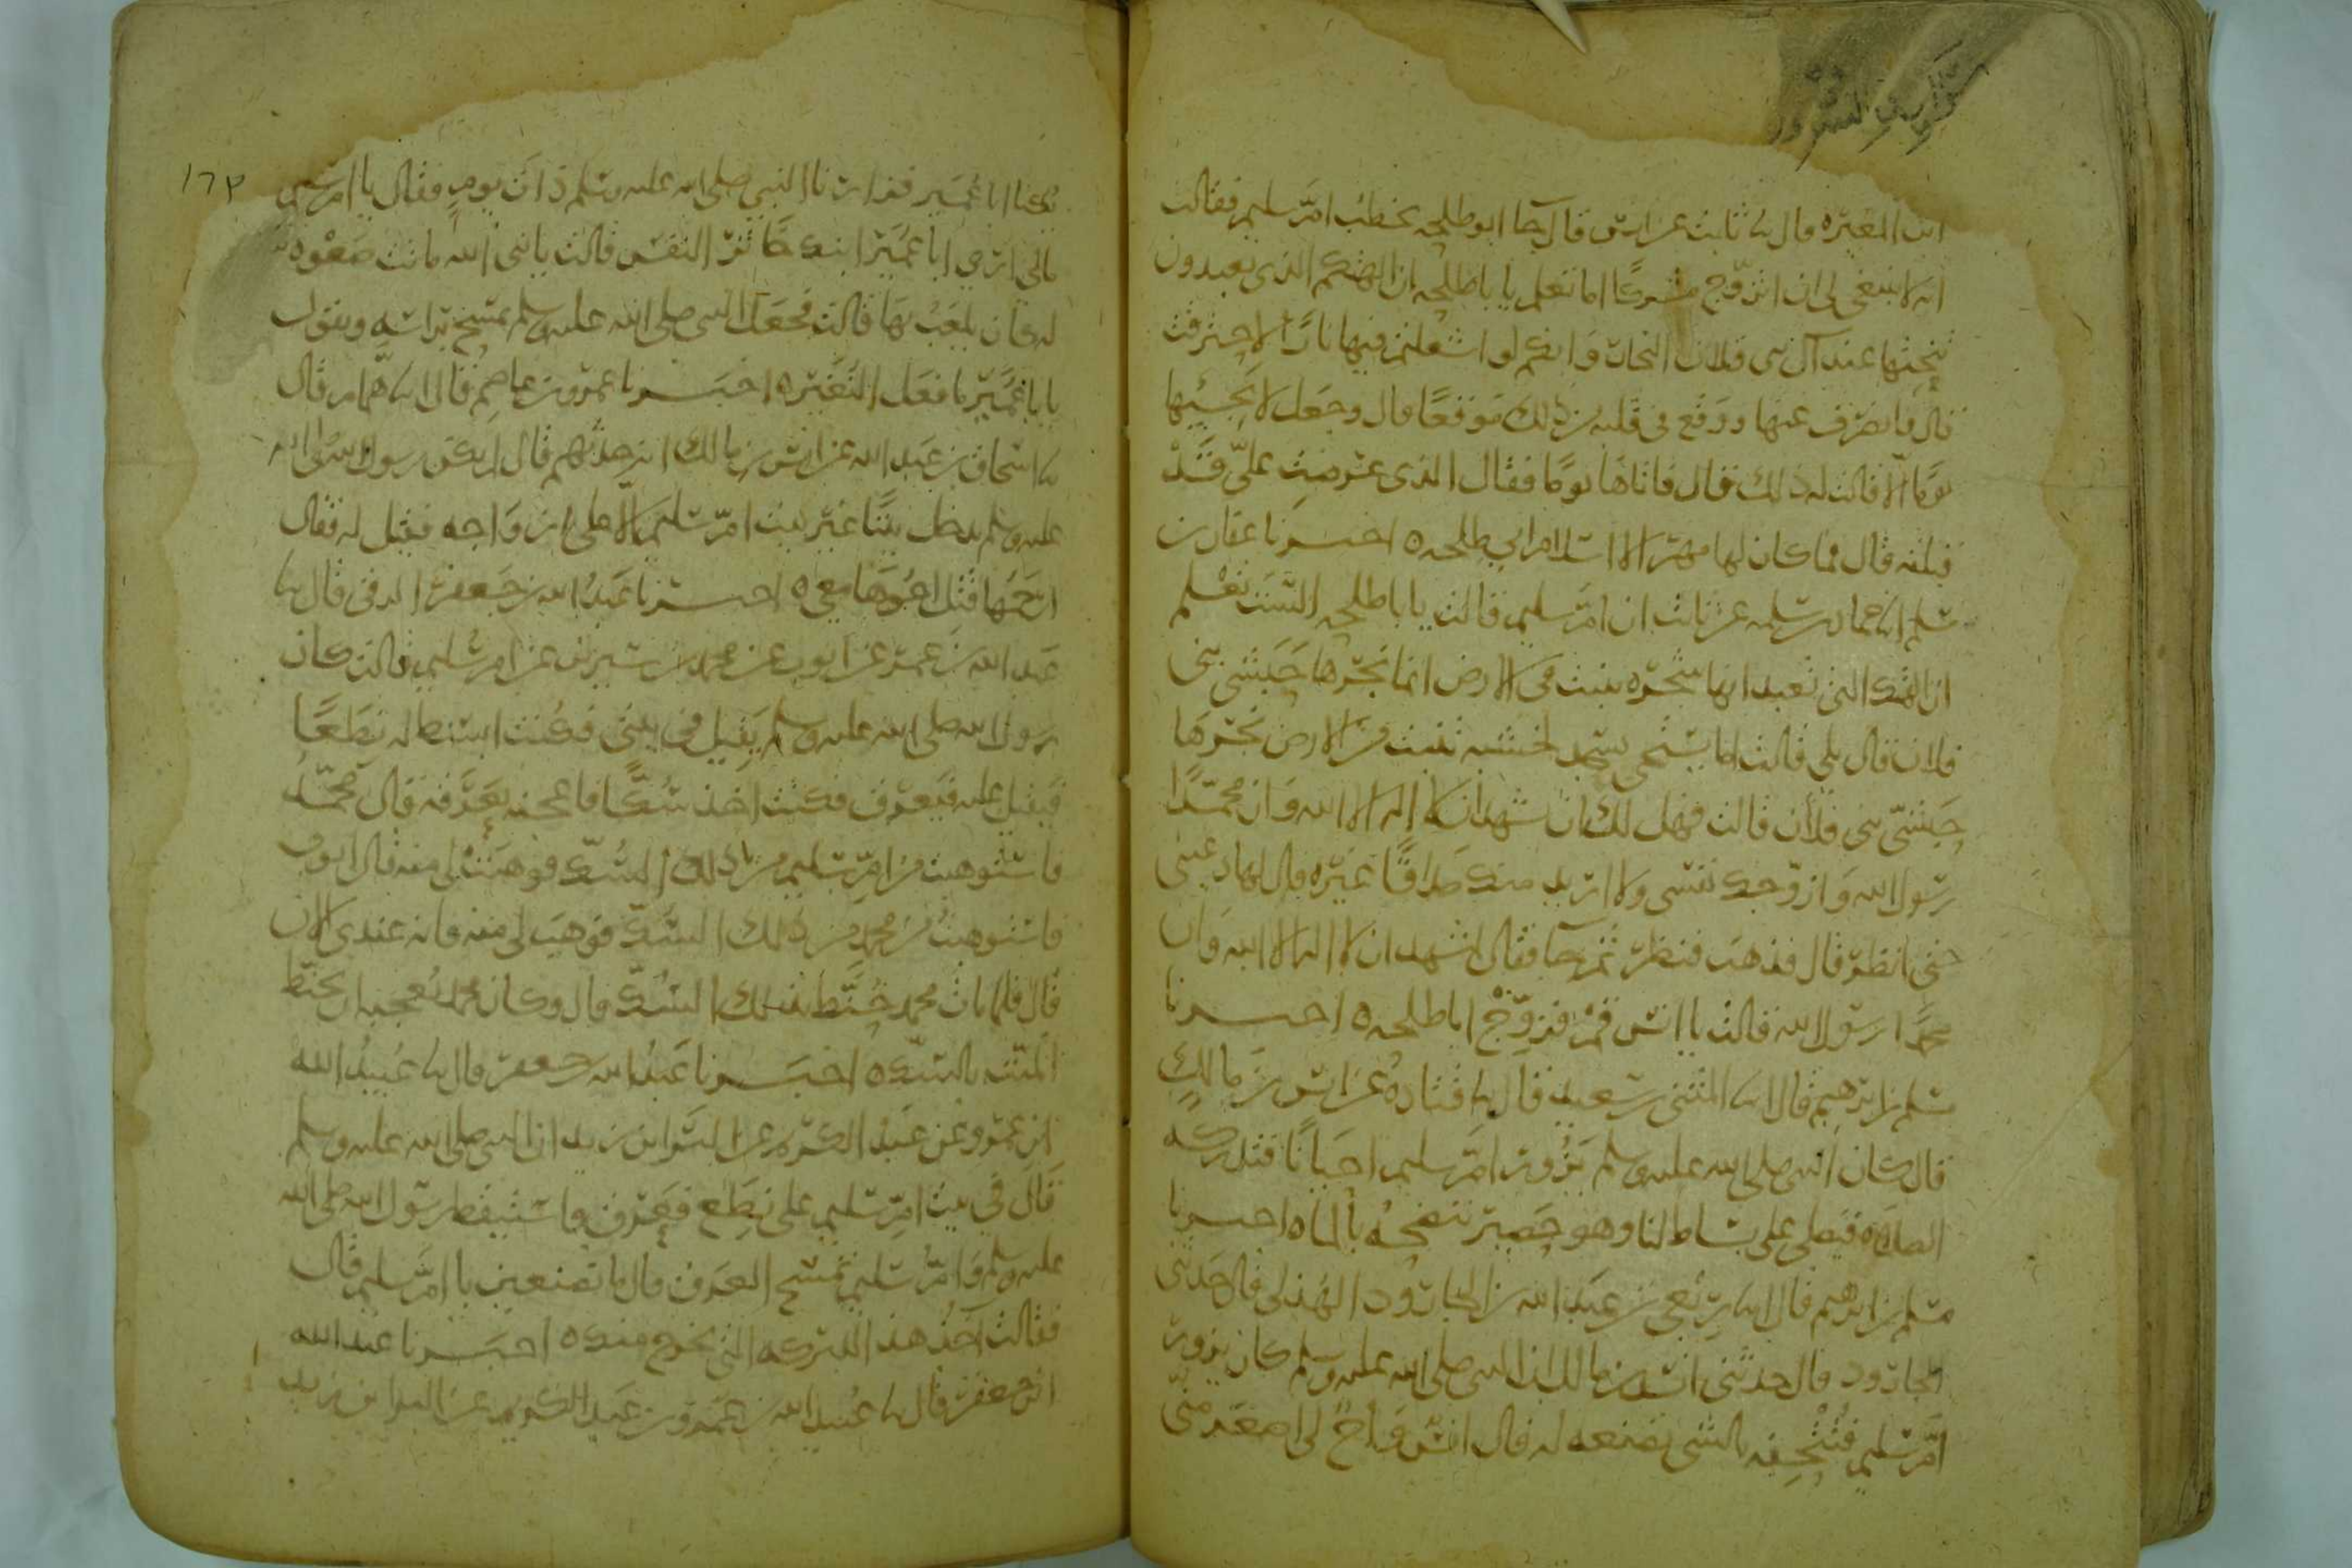 ابن المغيره قال سا ثابت عن انس قال جا ابو طلحه يخطب ام سليم فقالت
انه لا ينبغي لي ان اتزوج مشركا اما تعلم يا با طلحه ان الهتكم الذي تعبدون
ينحتها عبد آل بني فلان النجار وانكم لو اشعلتم فيها نارًا لاحترقت
قال فانصرف عنها ووقع في قلبه من ذلك موقعًا قال وجعل لا يجيها
يومًا الا قالت له ذلك قال فاتاها يومًا فقال الذي عرضت عليّ قد
قبلته قال فما كان لها مهر الا اسلام ابي طلحه ه اخبرنا عفان بن
مسلم انا حماد بن سلمه عن ثابت ان ام سليم قالت يا با طلحه الست تعلم
ان الهك التي تعبد انها شجره تنبت من الارض انما نجرها حبشي بني
فلان قال بلى قالت اما تستحي تسجد لخشبه تنبت من الارض نجرها
حبشيّ بني فلان قالت فهل لك ان تشهد ان لا اله الا الله وان محمّدًا
رسول الله وازوجك نفسي ولا اريد منك صداقًا غيره قال لها دعيني
حتى انظر قال فذهب فنظر ثم جا فقال اشهد ان لا اله الا الله وان
محمدًا رسول الله قالت يا انس قم فزوّج ابا طلحه ه اخبرنا
مسلم بن ابرهيم قال انا المثنى بن سعيد قال سا قتاده عن انس بن مالك
قال كان النبي صلى الله عليه وسلم يزور ام سليم احيانًا فتدركه
الصلاه فيصلي على بساط لنا وهو حصير ننضحه بالماه اخبرنا
مسلم بن ابرهيم قال انا ربعي بن عبد الله بن الجارود الهذلي قال حدثني
الجارود قال حدثني انس بن مالك ان النبي صلى الله عليه وسلم كان يزور
ام سليم فتتحفه بالشي تصنعه له قال انس واخ لي اصغر مني
١٦٣
يكنا ابا عمير فزارنا النبي صلى الله عليه وسلم ذات يوم فقال يا ام سليم
مالي ارى ابا عمير ابنك خاثر النفس قالت يا نبي الله ماتت صعوه
له كان يلعب بها قالت فجعل النبي صلى الله عليه وسلم يمسح براسه ويقول
يا با عمير ما فعل النغير ه اخبرنا عمرو بن عاصم قال انا همام قال
سا اسحاق بن عبد الله عن انس بن مالك انه حدثهم قال لم يكن رسول الله صلى الله
عليه وسلم يدخل بيتًا غير بيت ام سليم الا على ازواجه فقيل له فقال
ارحمها قتل اخوها معي ه اخبرنا عبد الله بن جعفر الرقي قال سا
عبد الله بن عمرو عن ايوب عن محمد بن سيرين عن ام سليم قالت كان
رسول الله صلى الله عليه وسلم يقيل في بيتي فكنت ابسط له نطعًا
فيقيل عليه فيعرق فكنت اخذ سُكًّا فاعجنه بعرقه قال محمّد
فاستوهبت من ام سليم من ذلك السُكّ فوهبت لي منه قال ايوب
فاستوهبت من محمد من ذلك السُكّ فوهب لي منه فانه عندي الان
قال فلما مات محمد حُنّط بذلك السُكّ قال وكان محمد يعجبه ان يحنط
الميّت بالسّك ه اخبرنا عبد الله بن جعفر قال سا عبيد الله
ابن عمرو عن عبد الكريم عن البرا بن زيد ان النبي صلى الله عليه وسلم
قال في بيت ام سليم على نطع فعرق فاستيقظ رسول الله صلى الله
عليه وسلم وام سليم تمسح العرق فقال ما تصنعين يا ام سليم قال
فقالت آخذ هذا للبركه التي تخرج منك ه اخبرنا عبد الله
ابن جعفر قال سا عبيد الله بن عمرو بن عبد الكريم عن البرا بن زيد